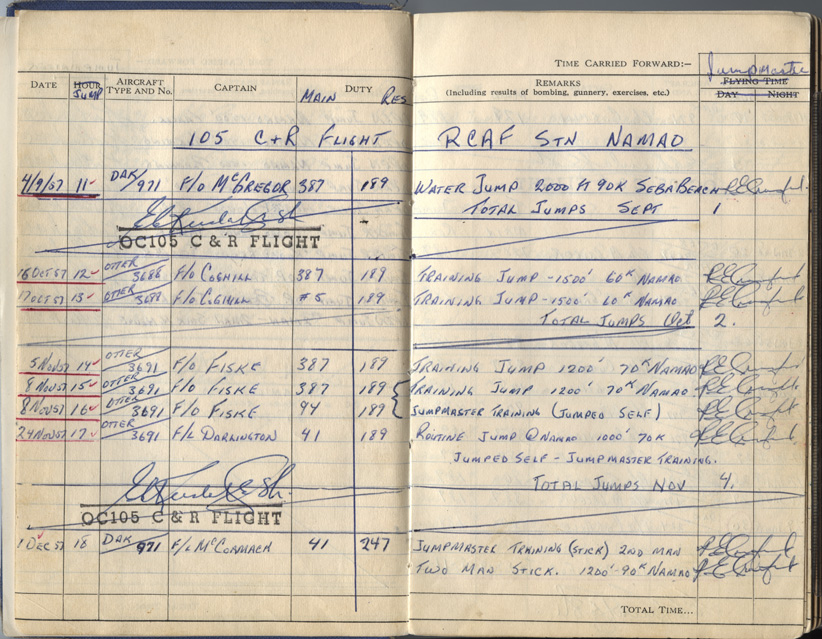 TIME CARRIED FORWARD:— Jumpmaster
DATE HOUR JUMP AIRCRAFT TYPE AND No. CAPTAIN MAIN DUTY RES REMARKS (Including results of bombing, gunnery, exercises, etc.) FLYING TIME DAY NIGHT
105 C+R FLIGHT RCAF STN NAMAO
4/9/57 11 DAK/971 F/O McGREGOR 387 189 WATER JUMP 2000 FT 90K SEBA BEACH
TOTAL JUMPS SEPT 1
OC105 C & R FLIGHT
16 OCT 57 12 OTTER 3688 F/O COGHILL 387 189 TRAINING JUMP - 1500' 60K NAMAO
17 OCT 57 13 OTTER 3688 F/O COGHILL #5 189 TRAINING JUMP - 1500' 60K NAMAO
TOTAL JUMPS Oct 2.
5 NOV 57 14 OTTER 3691 F/O FISKE 387 189 TRAINING JUMP 1200' 70K NAMAO
8 NOV 57 15 OTTER 3691 F/O FISKE 387 189 TRAINING JUMP 1200' 70K NAMAO
8 NOV 57 16 OTTER 3691 F/O FISKE 94 189 JUMPMASTER TRAINING (JUMPED SELF)
24 NOV 57 17 OTTER 3691 F/L DARLINGTON 41 189 ROUTINE JUMP @ NAMAO 1000' 70K
JUMPED SELF - JUMPMASTER TRAINING.
TOTAL JUMPS NOV 4.
OC105 C & R FLIGHT
1 DEC 57 18 DAK 971 F/L McCORMACK 41 247 JUMPMASTER TRAINING (STICK) 2ND MAN
TWO MAN STICK. 1200'-90K NAMAO
TOTAL TIME...